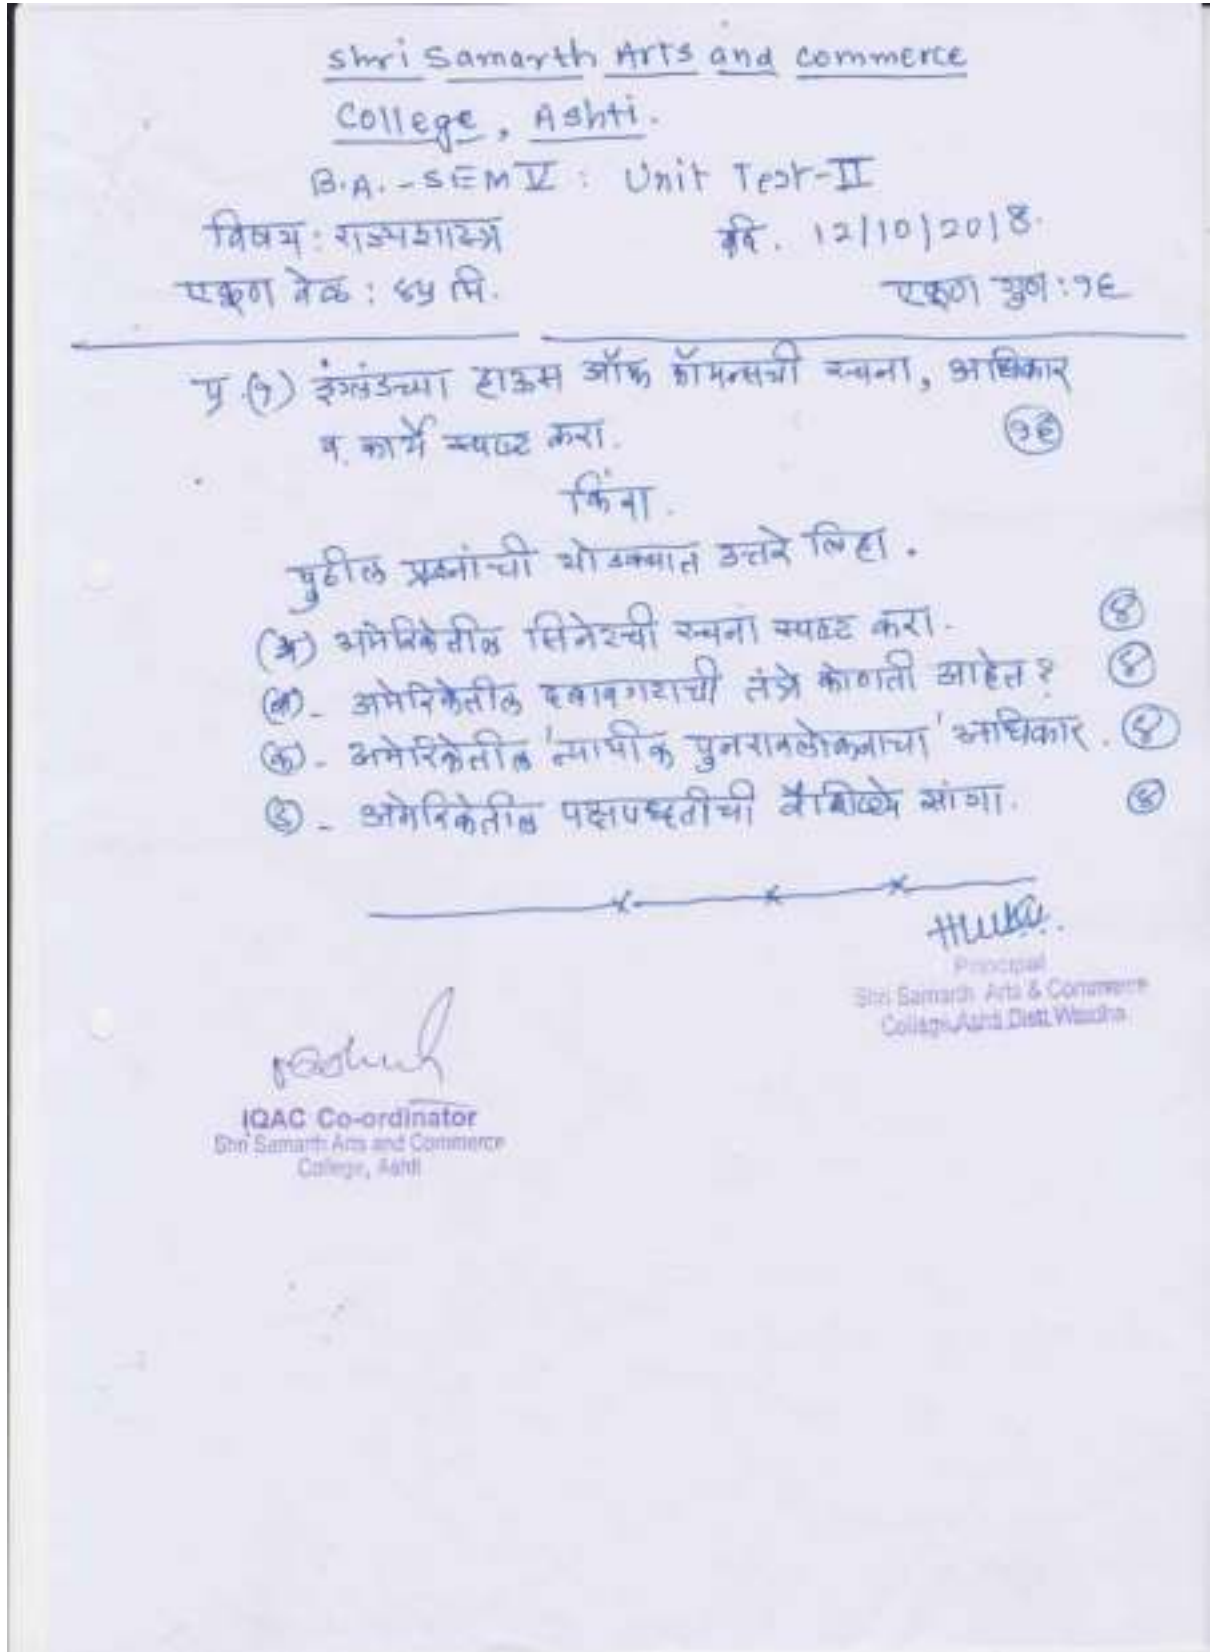 Shri Samarth Arts and commerce
College, Ashti.
B.A. - SEM V : Unit Test-II
विषय : राज्यशास्त्र दि. 12/10/2018.
एकूण वेळ : ४५ मि. एकूण गुण : १६
प्र.(१) इंग्लंडच्या हाऊस ऑफ कॉमन्सची रचना, अधिकार
व कार्ये स्पष्ट करा. १६
किंवा.
पुढील प्रश्नांची थोडक्यात उत्तरे लिहा.
(अ) अमेरिकेतील सिनेटची रचना स्पष्ट करा. ४
(ब) - अमेरिकेतील दबावगटाची तंत्रे कोणती आहेत? ४
(क) - अमेरिकेतील 'न्यायीक पुनरावलोकनाचा' अधिकार. ४
(ड) - अमेरिकेतील पक्षपध्दतीची वैशिष्ट्ये सांगा. ४
Principal
Shri Samarth Arts & Commerce
College, Ashti Distt. Wardha
IQAC Co-ordinator
Shri Samarth Arts and Commerce
College, Ashti